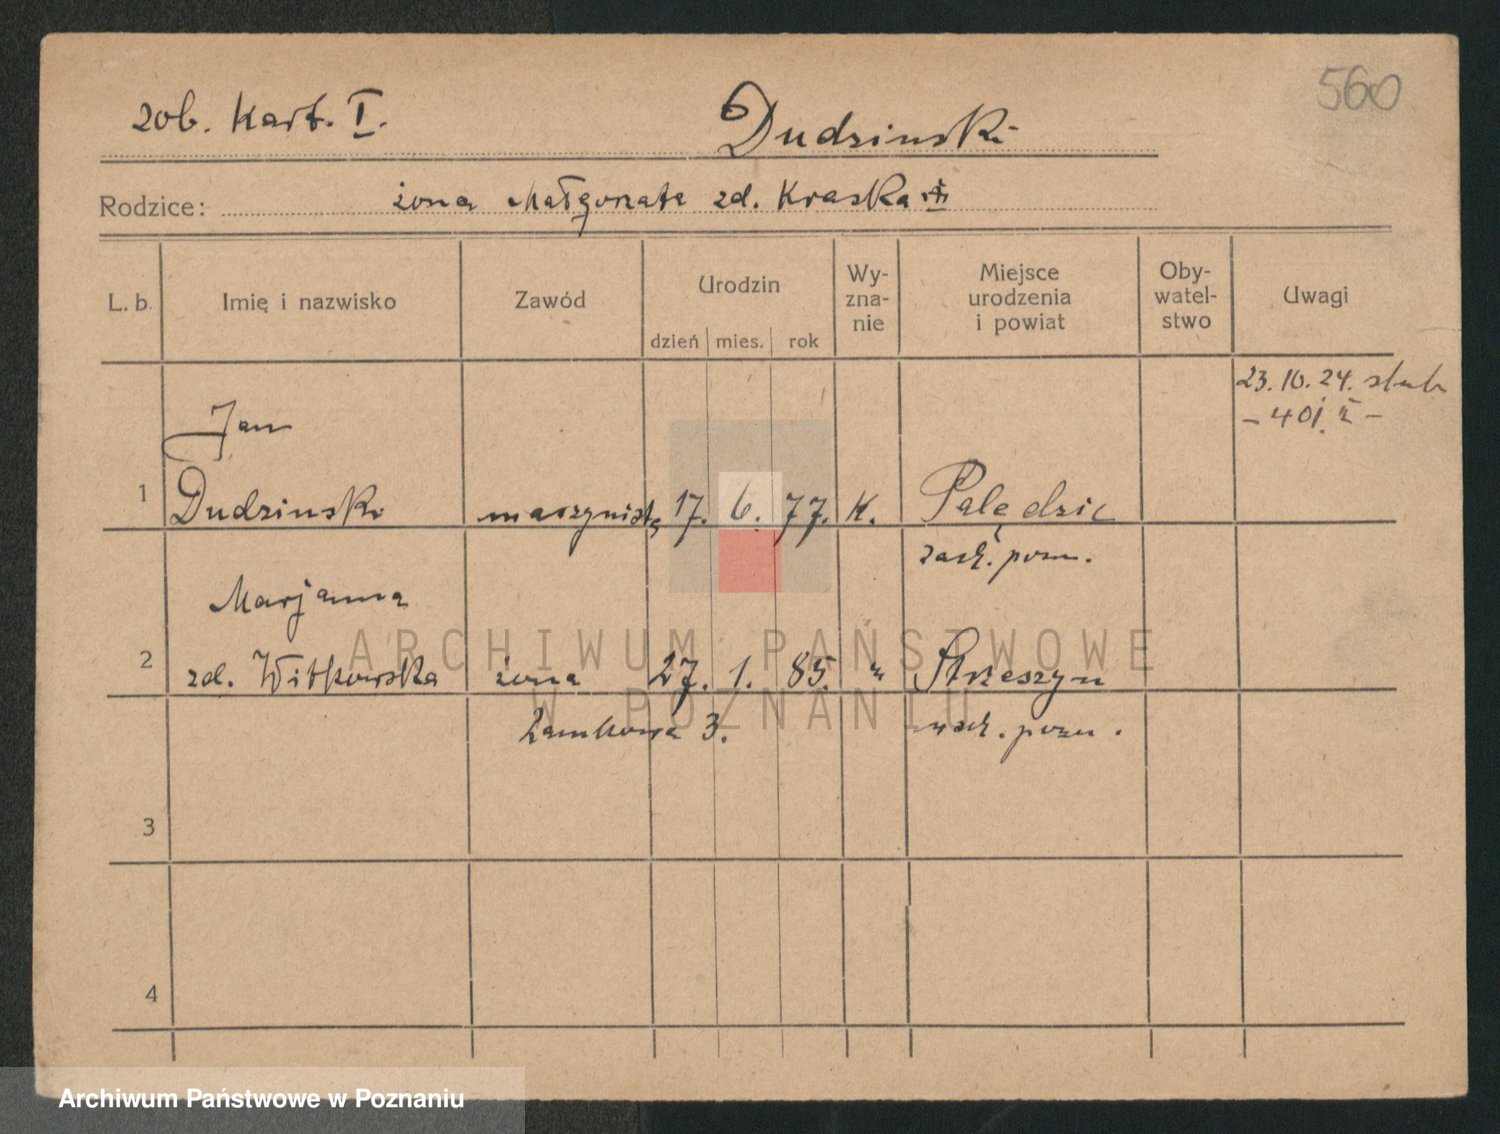 560
zob. Kart. I. Dudzinski
Rodzice: żona Małgorzata zd. Kraska
L. b. Imię i nazwisko Zawód Urodzin dzień mies. rok Wy-
zna-
nie Miejsce
urodzenia
i powiat Oby-
watel-
stwo Uwagi
23. 10. 24. ślub
- 401. -
Jan
1 Dudzinski maszynista 17. 6. 77. K. Palędzie
zach. pozn.
Marjanna
2 zd. Witkowska żona 27. 1. 85. " Strzeszyn
Zamkowa 3. zach. pozn.
3
4
ARCHIWUM PAŃSTWOWE
W POZNANIU
Archiwum Państwowe w Poznaniu